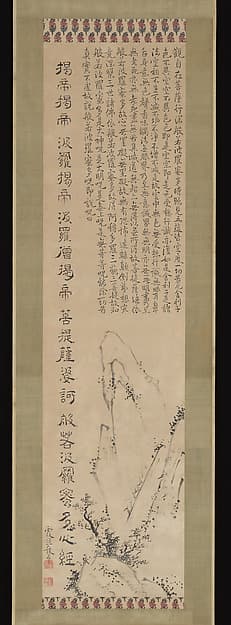 觀自在菩薩行深般若波羅蜜多時照見五蘊皆空度一切苦厄舍利子
色不異空空不異色色即是空空即是色受想行識亦復如是舍利子是諸
法空相不生不滅不垢不淨不增不減是故空中無色無受想行識無眼耳鼻
舌身意無色聲香味觸法無眼界乃至無意識界無無明亦無無明盡乃至
無老死亦無老死盡無苦集滅道無智亦無得以無所得故菩提薩埵依
般若波羅蜜多故心無罣礙無罣礙故無有恐怖遠離顛倒夢想究
竟涅槃三世諸佛依般若波羅蜜多故得阿耨多羅三藐三菩提故知
般若波羅蜜多是大神呪是大明呪是無上呪是無等等呪能除一切苦
真實不虛故說般若波羅蜜多呪即說呪曰
揭帝揭帝波羅揭帝波羅僧揭帝菩提薩婆訶般若波羅蜜多心經